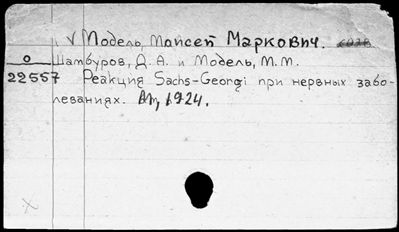 √ Модель, Моисей Маркович.
о Шамбуров, Д. А. и Модель, М. М.
22557 Реакция Sachs-Georgi при нервных забо-
леваниях. 1924.